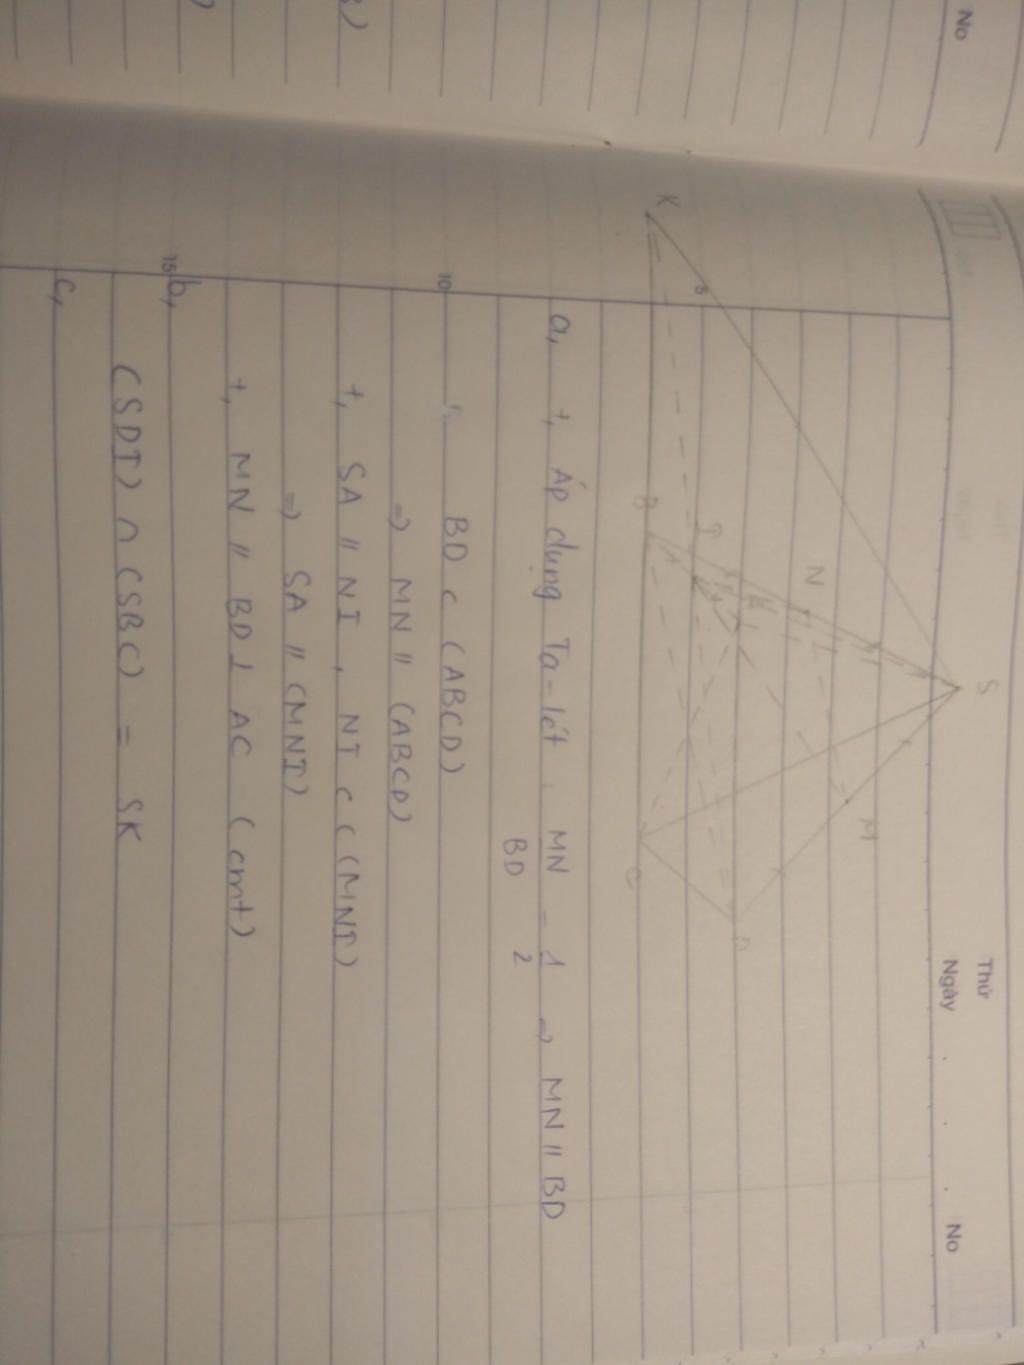 No
Thứ
Ngày . . . No
S
M
N
5
I
D
K
B
C
a, +, Áp dụng Ta-lét : MN/BD = 1/2 => MN // BD
10
BD ⊂ (ABCD)
=> MN // (ABCD)
+, SA // NI , NI ⊂ (MNI)
=> SA // (MNI)
+, MN // BD ⊥ AC (cmt)
15
b,
(SDI) ∩ (SBC) = SK
c,